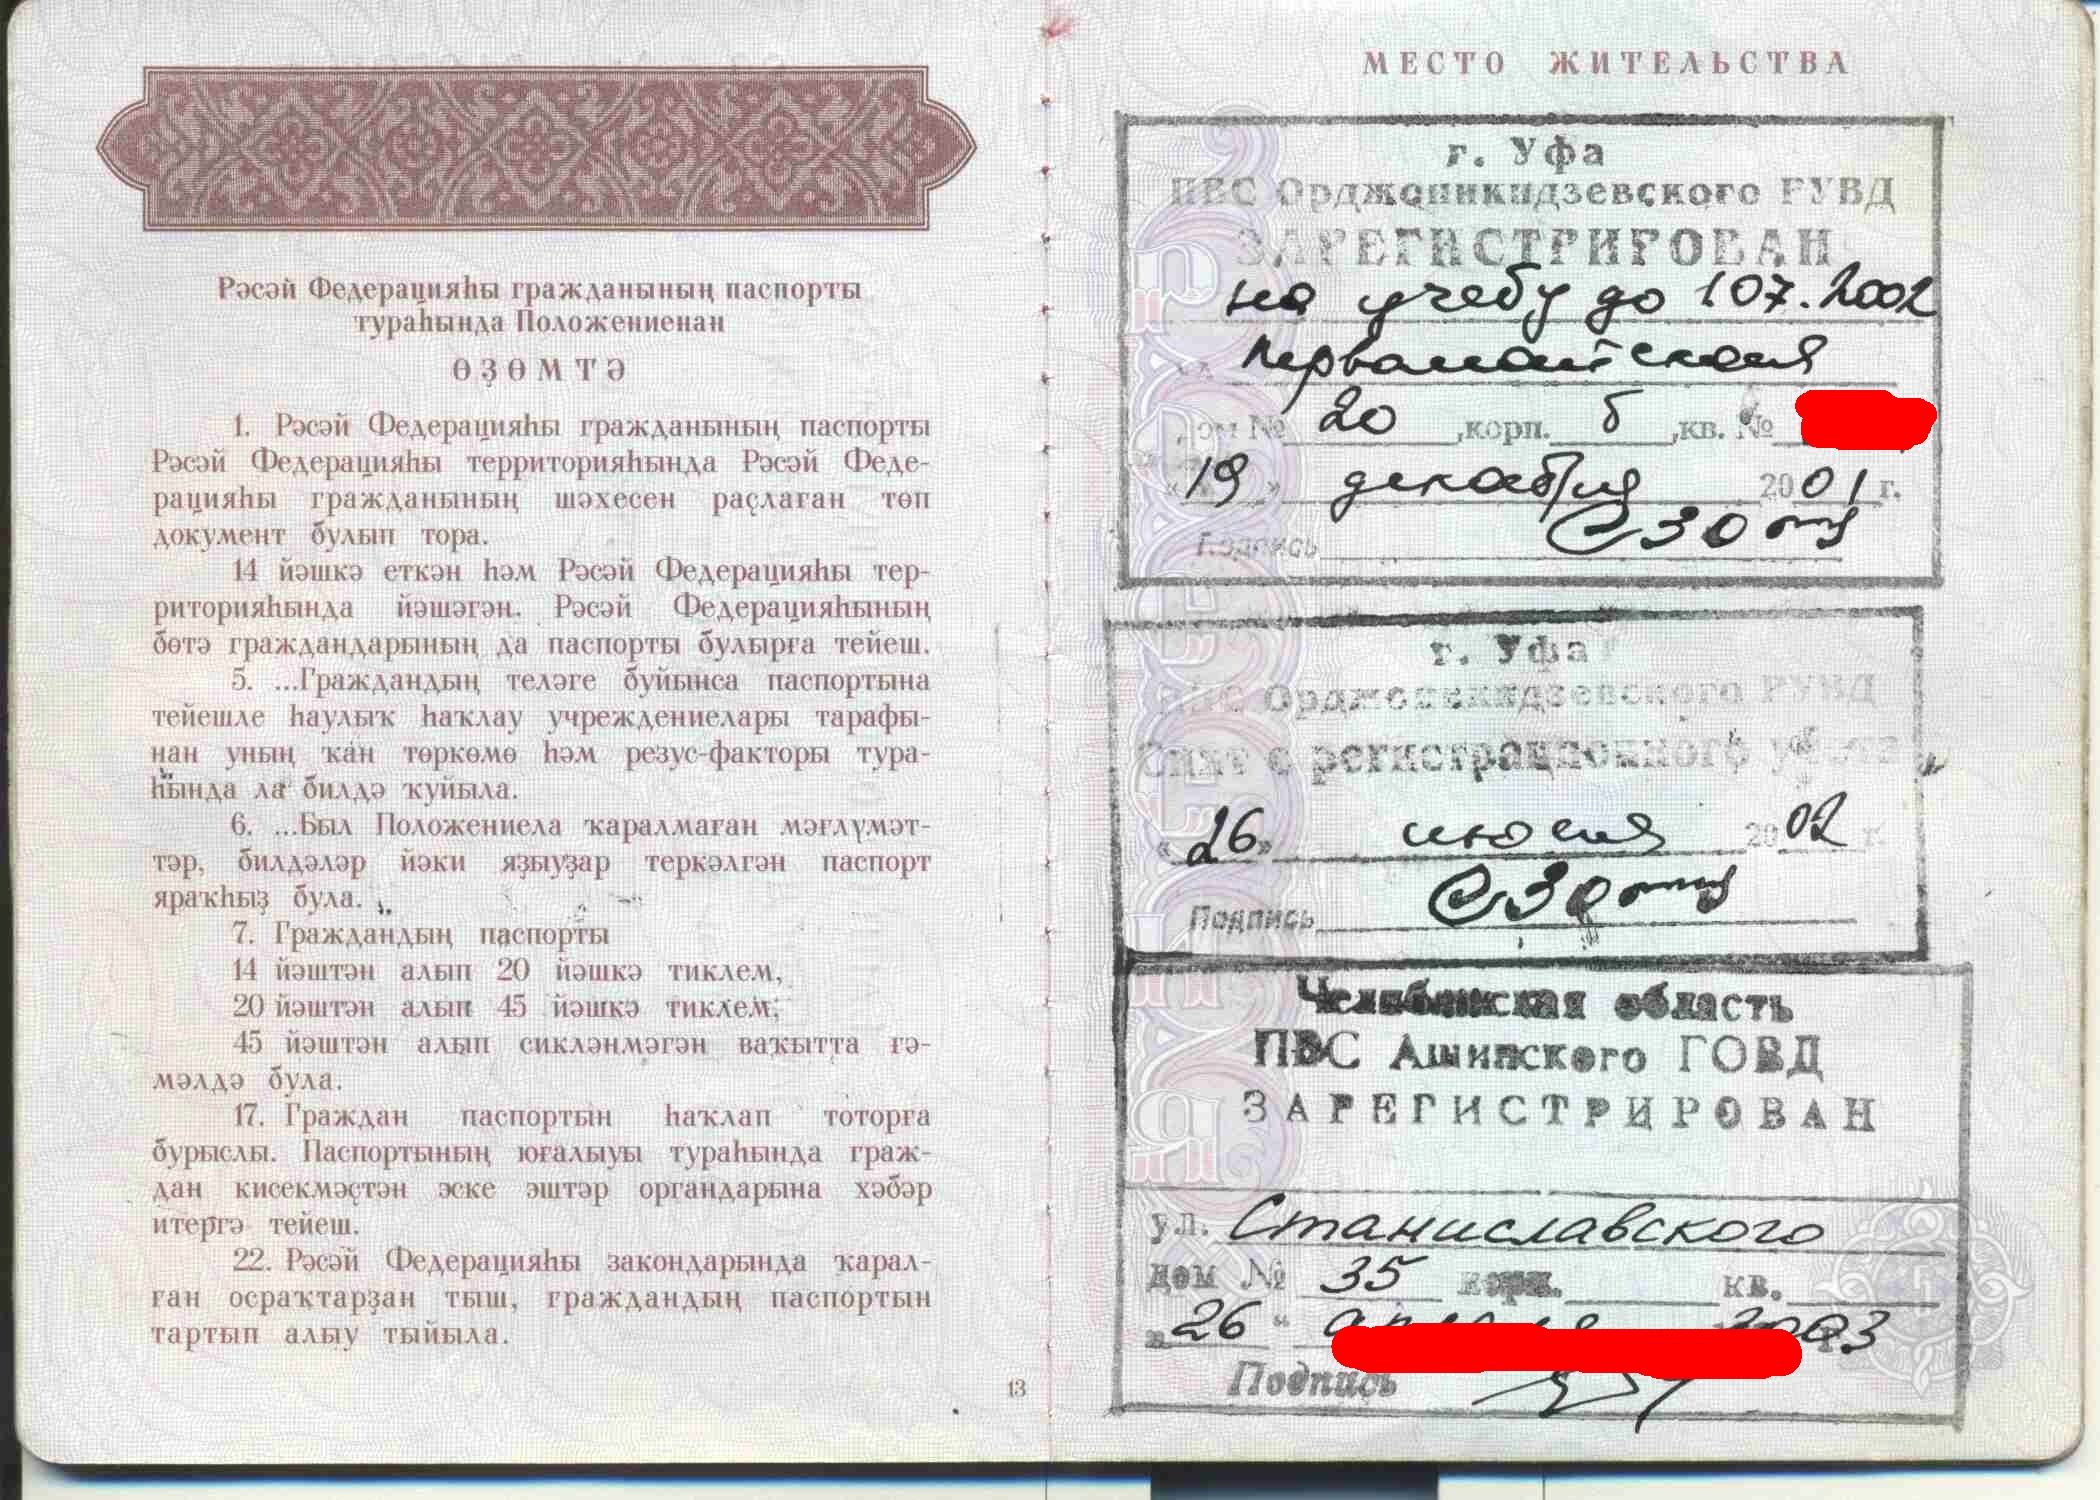 Рәсәй Федерацияһы гражданының паспорты
тураһында Положениенан
ӨҘӨМТӘ
1. Рәсәй Федерацияһы гражданының паспорты
Рәсәй Федерацияһы территорияһында Рәсәй Феде-
рацияһы гражданының шәхесен раҫлаған төп
документ булып тора.
14 йәшкә еткән һәм Рәсәй Федерацияһы тер-
риторияһында йәшәгән. Рәсәй Федерацияһының
бөтә граждандарының да паспорты булырға тейеш.
5. ...Граждандың теләге буйынса паспортына
тейешле һаулыҡ һаҡлау учреждениелары тарафы-
нан уның ҡан төркөмө һәм резус-факторы тура-
һында ла билдә ҡуйыла.
6. ...Был Положениела ҡаралмаған мәғлүмәт-
тәр, билдәләр йәки яҙыуҙар теркәлгән паспорт
яраҡһыҙ була.
7. Граждандың паспорты
14 йәштән алып 20 йәшкә тиклем,
20 йәштән алып 45 йәшкә тиклем,
45 йәштән алып сикләнмәгән ваҡытта ғә-
мәлдә була.
17. Граждан паспортын һаҡлап тоторға
бурыслы. Паспортының юғалыуы тураһында граж-
дан кисекмәҫтән эске эштәр органдарына хәбәр
итергә тейеш.
22. Рәсәй Федерацияһы закондарында ҡарал-
ған осраҡтарҙан тыш, граждандың паспортын
тартып алыу тыйыла.
13
МЕСТО ЖИТЕЛЬСТВА
г. Уфа
ПВС Орджоникидзевского РУВД
ЗАРЕГИСТРИРОВАН
на учебу до 107.2002
Первомайская
дом № 20 ,корп. б ,кв. №
«19» декабря 2001 г.
Подпись
г. Уфа
ПВС Орджоникидзевского РУВД
Снят с регистрационного учета
«26» июня 2002 г.
Подпись
Челябинская область
ПВС Ашинского ГОВД
ЗАРЕГИСТРИРОВАН
ул. Станиславского
дом № 35 корп. кв.
„26“ 2003
Подпись